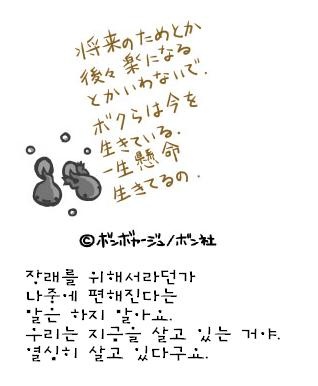 将来のためとか
後々楽になる
とかいわないで.
ボクらは今を
生きている.
一生懸命
生きてるの.
©ボンボヤージュ/ボン社
장래를 위해서라던가
나중에 편해진다는
말은 하지 말아요.
우리는 지금을 살고 있는 거야.
열심히 살고 있다구요.